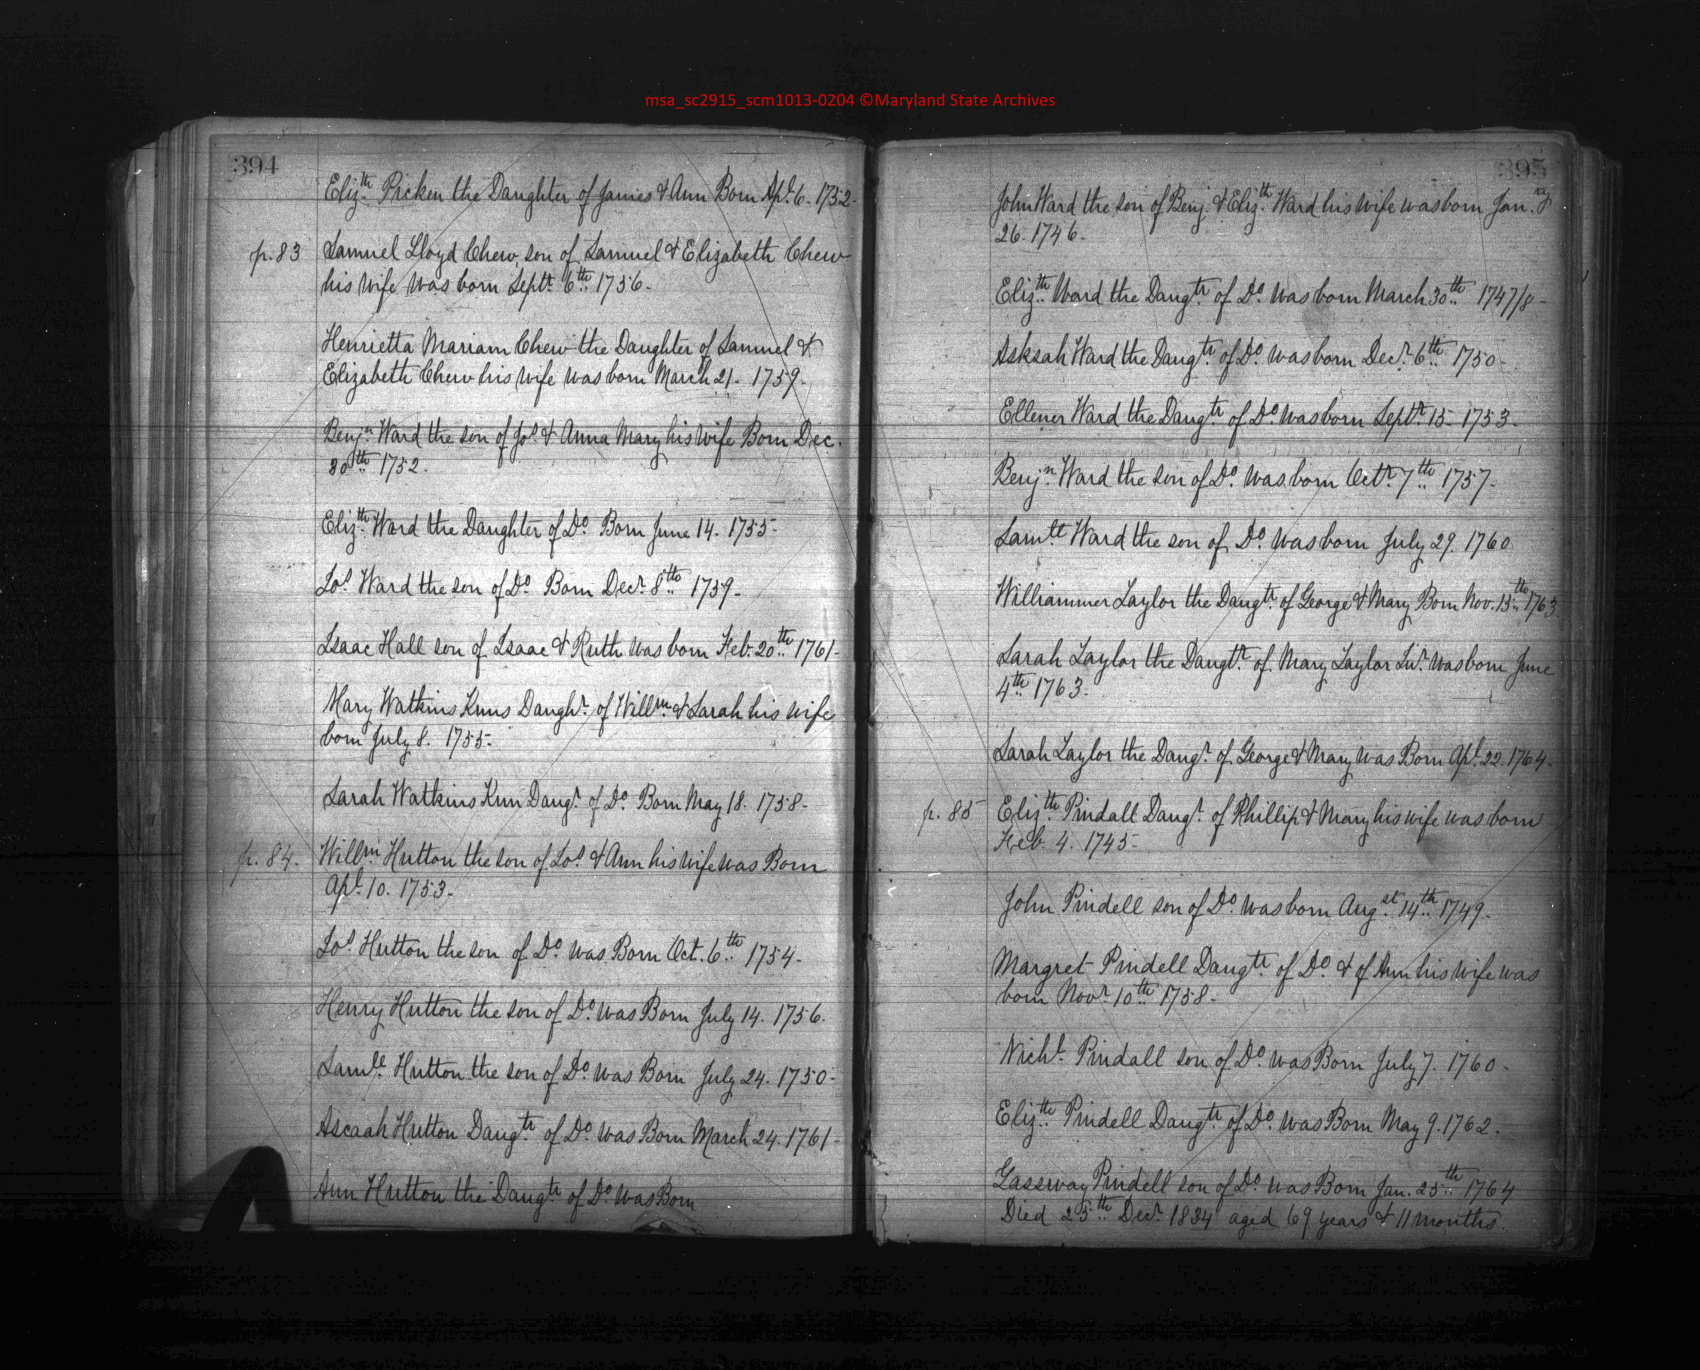 msa_sc2915_scm1013-0204 ©Maryland State Archives
394
Elizth Picken the Daughter of James & Ann Born Apl. 6. 1752.
p. 83 Samuel Lloyd Chew, son of Samuel & Elizabeth Chew
his Wife was born Septr. 6th 1756.
Henrietta Mariam Chew the Daughter of Samuel &
Elizabeth Chew his Wife was born March 21. 1759.
Benjn Ward the son of Jos & Anna Mary his Wife Born Dec.
30th 1752.
Elizth Ward the Daughter of Do. Born June 14. 1755-
Jos Ward the son of Do. Born Decr. 8th 1759-
Isaac Hall son of Isaac & Ruth was born Feb. 20th 1761-
Mary Watkins Kuns Daughr. of Willm & Sarah his Wife
born July 8. 1755.
Sarah Watkins Kun Daugr. of Do. Born May 18. 1758-
p. 84. Willm Hutton the son of Jos & Ann his Wife was Born
Apl. 10. 1753-
Jos Hutton the son of Do. was Born Oct. 6th 1754-
Henry Hutton the son of Do. was Born July 14. 1756.
Samle Hutton the son of Do. was Born July 24. 1750-
Ascaah Hutton Daugtr of Do. was Born March 24. 1761-
Ann Hutton the Daugtr of Do. was Born
395
John Ward the son of Benj. & Elizth Ward his Wife was born Jan.ry
26. 1746.
Elizth Ward the Daugtr. of Do. was born March 30th 1747/8-
Asksah Ward the Daugtr. of Do. was born Decr. 6th 1750-
Ellener Ward the Daugtr. of Do. was born Septr. 15. 1753-
Benjn Ward the son of Do. was born Octr. 7th 1757-
Samll Ward the son of Do. was born July 29. 1760
Williammer Taylor the Daugtr. of George & Mary Born Nov. 15th 1763
Sarah Taylor the Daugtr. of Mary Taylor was born June
4th 1763.
Sarah Taylor the Daugr. of George & Mary was Born Apl. 22. 1764.
p. 85 Elizth Pindall Daugr. of Phillip & Mary his wife was born
Feb. 4. 1745-
John Pindell son of Do. was born Augst 14th 1749-
Margret Pindell Daugtr of Do. & of Ann his Wife was
born Novr. 10th 1758-
Nichl. Pindall son of Do. was Born July 7. 1760-
Elizth Pindell Daugtr of Do. was Born May 9. 1762-
Gassway Pindell son of Do. was Born Jan. 25th 1764
Died 25th Decr. 1834 aged 69 years & 11 months.